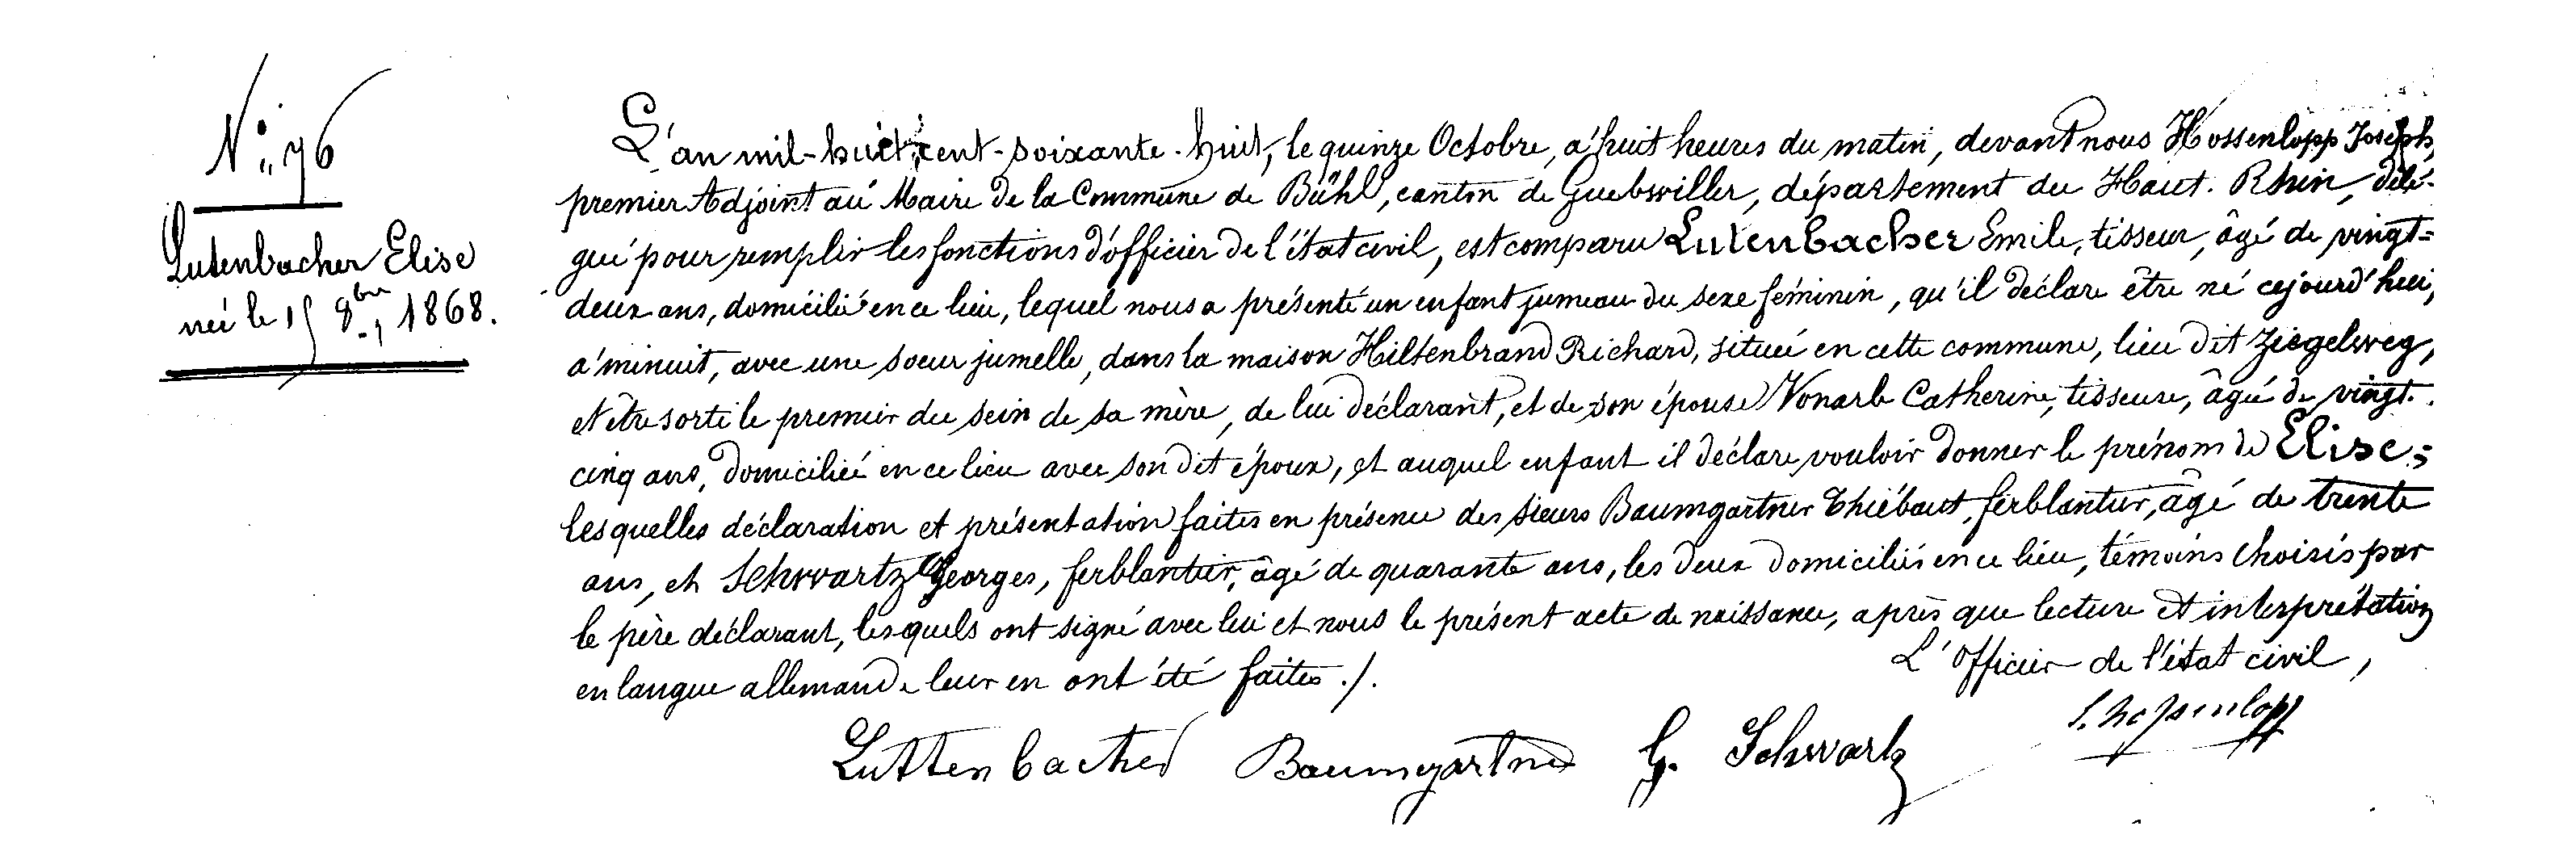 N° 76
Lutenbacher Elise
née le 15 8bre 1868.
L'an mil-huit-cent-soixante-huit, le quinze Octobre, à huit heures du matin, devant nous Hossenlopp Joseph,
premier Adjoint au Maire de la Commune de Bühl, canton de Guebwiller, département du Haut-Rhin, délé-
gué pour remplir les fonctions d'officier de l'état civil, est comparu Lutenbacher Emile, tisseur, âgé de vingt-
deux ans, domicilié en ce lieu, lequel nous a présenté un enfant jumeau du sexe féminin, qu'il déclare être né cejourd'hui,
à minuit, avec une soeur jumelle, dans la maison Hiltenbrand Richard, située en cette commune, lieu dit Ziegelweg,
et être sorti le premier du sein de sa mère, de lui déclarant, et de son épouse Vonarb Catherine, tisseuse, âgée de vingt-
cinq ans, domiciliée en ce lieu avec son dit époux, et auquel enfant il déclare vouloir donner le prénom de Elise;
lesquelles déclaration et présentation faites en présence des sieurs Baumgartner Thiébaut, ferblantier, âgé de trente
ans, et Schwartz Georges, ferblantier, âgé de quarante ans, les deux domiciliés en ce lieu, témoins choisis par
le père déclarant, lesquels ont signé avec lui et nous le présent acte de naissance, après que lecture et interprétation
en langue allemande leur en ont été faites ./.
L'Officier de l'état civil,
Luttenbacher Baumgartner G. Schwartz J. Hossenlopp